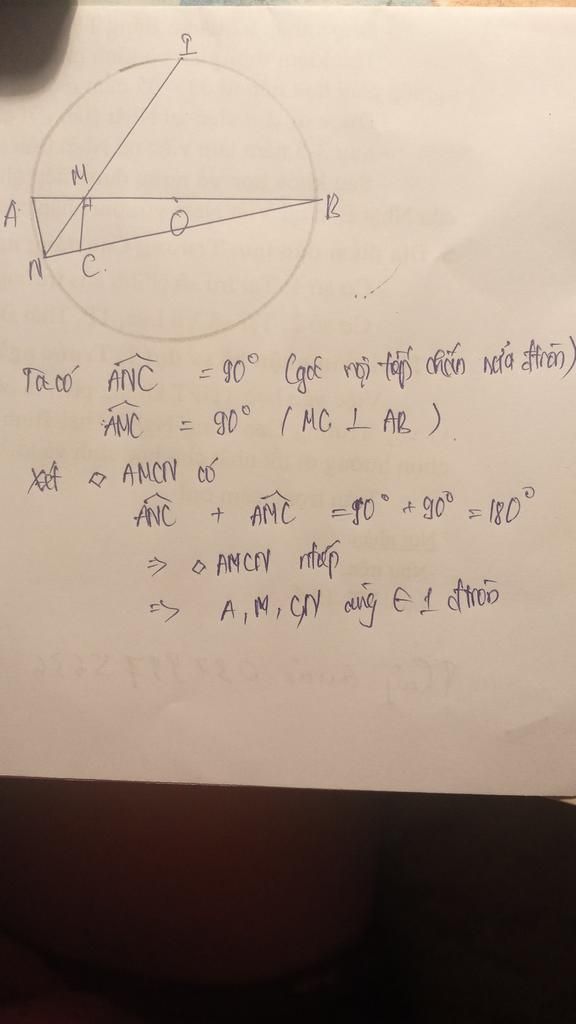 I
M
A
O
B
N
C
Ta có ANC = 90° (góc nội tiếp chắn nửa đtròn)
AMC = 90° (MC ⊥ AB)
Xét ◇ AMCN có
ANC + AMC = 90° + 90° = 180°
=> ◇ AMCN ntiếp
=> A, M, C, N cùng ∈ 1 đtròn